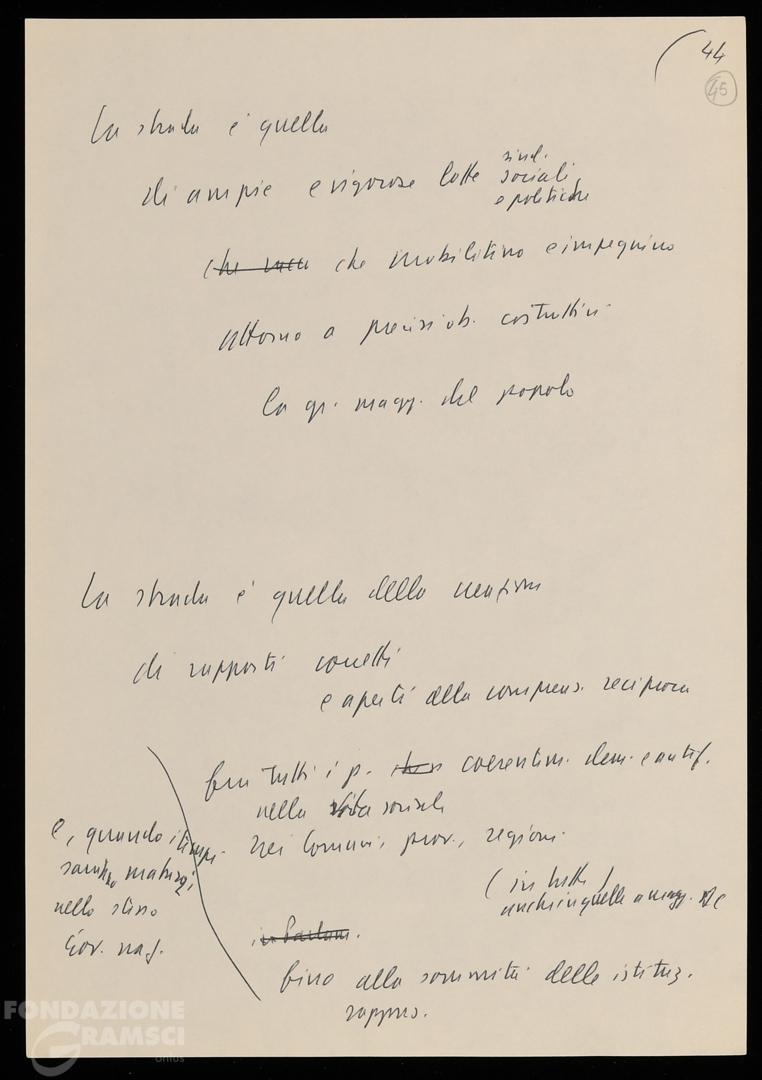 44
45
La strada è quella
di ampie e vigorose lotte sind.
sociali
e politiche
che mobilitino e impegnino
attorno a precisi ob. costruttivi
la gr. magg. del popolo
La strada è quella della creazione
di rapporti corretti
e aperti alla comprens. reciproca
fra tutti i p. coerentem. dem. e antif.
nella vita sociale
nei Comuni, prov., regioni
(in tutte!
anche in quelle a magg. DC
e, quando i tempi
saranno maturi,
nello stesso
Gov. naz.
in Parlam.
fino alla sommità delle istituz.
rappres.
FONDAZIONE
GRAMSCI
onlus